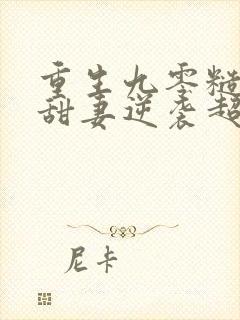 重生九零糙
甜妻逆袭超
尼卡